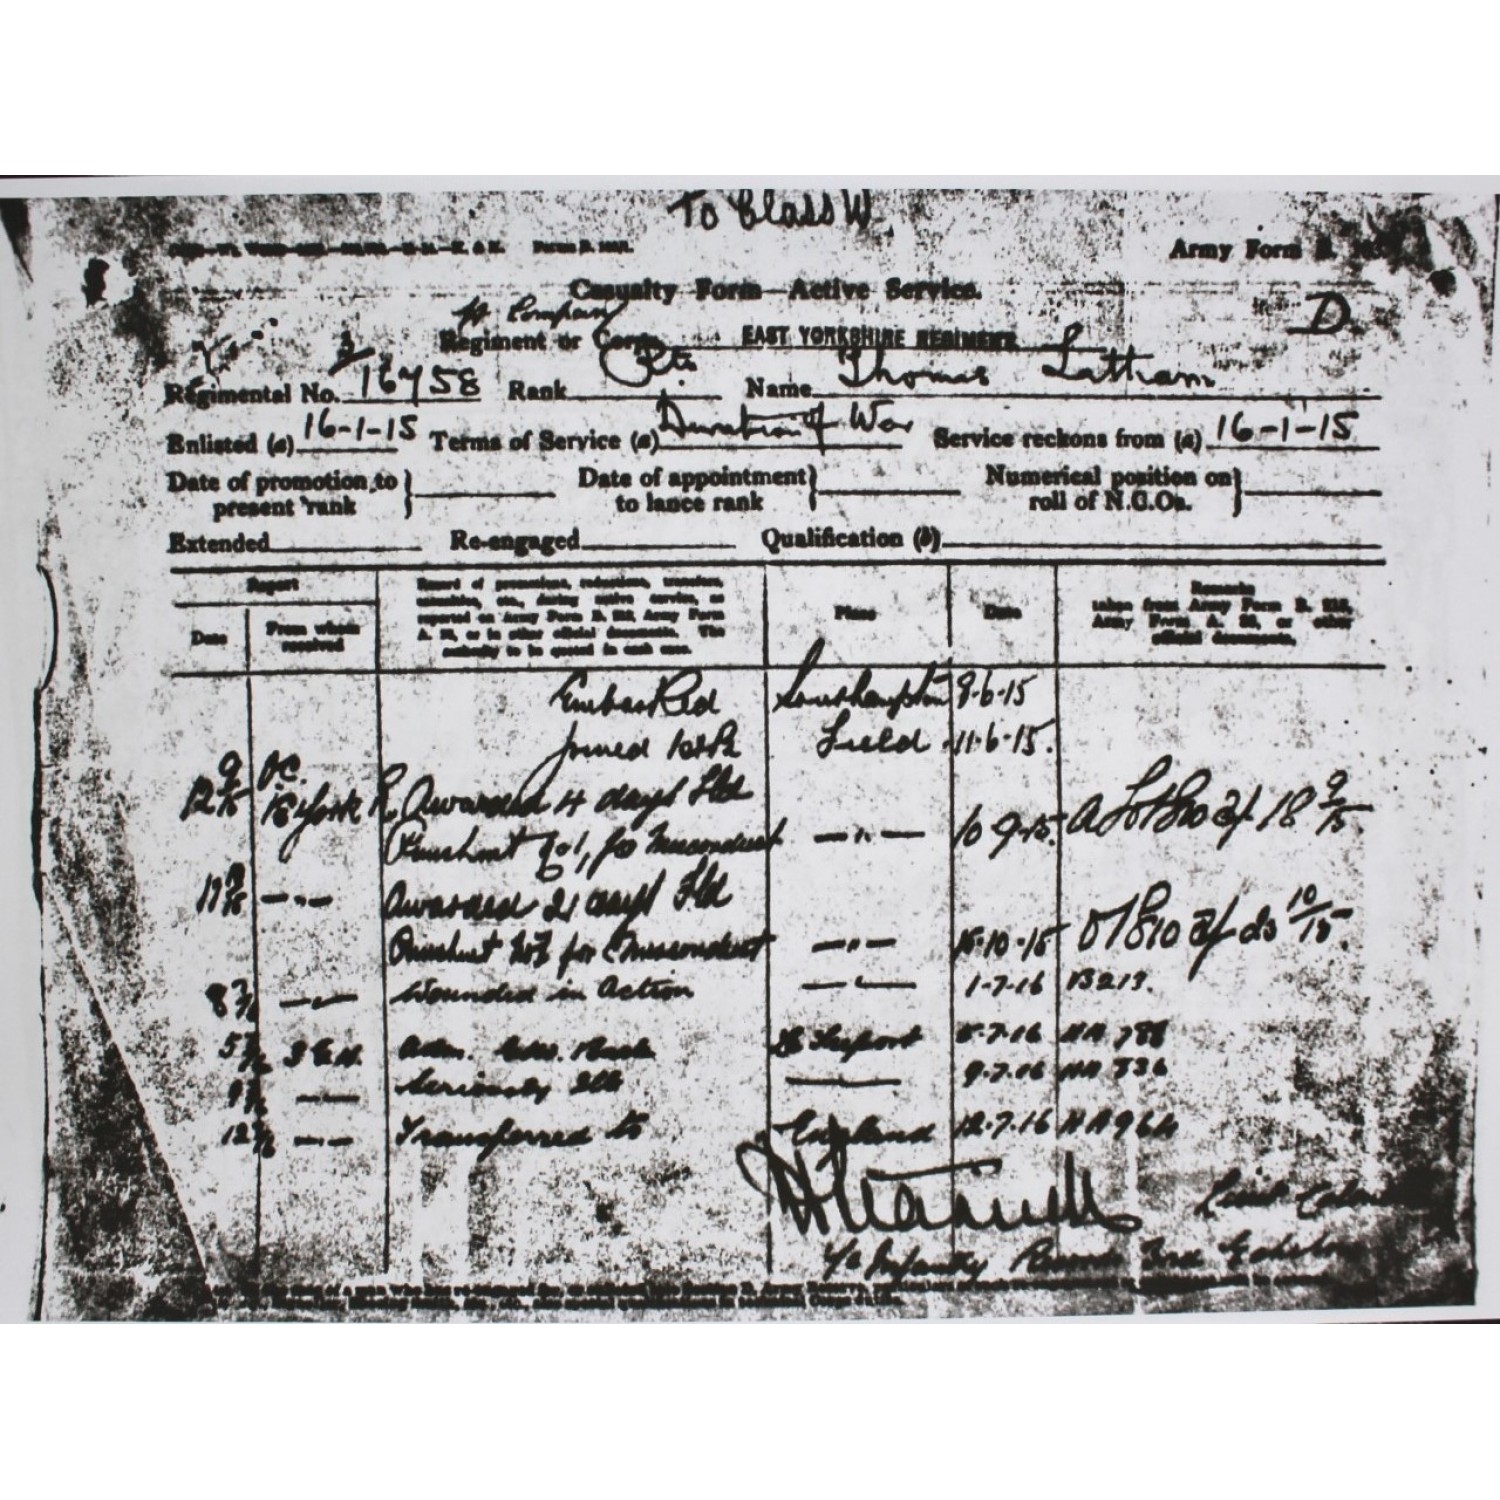 To Class W.
Forms B. 103/1.
Army Form B.
Casualty Form—Active Service.
D.
A Company
Regiment or Corps EAST YORKSHIRE REGIMENT
Regimental No. 3/16758 Rank Pte Name Thomas Latham
Enlisted (a) 16-1-15 Terms of Service (a) Duration of War Service reckons from (a) 16-1-15
Date of promotion to present rank } Date of appointment to lance rank } Numerical position on roll of N.C.Os. }
Extended Re-engaged Qualification (b)
Report
Date From whom received Record of promotions, reductions, transfers, casualties, etc., during active service, as reported on Army Form B. 213, Army Form A. 36, or in other official documents. The authority to be quoted in each case. Place Date Remarks taken from Army Form B. 213, Army Form A. 36, or other official documents.
Embarked Southampton 8-6-15
Joined Field 11-6-15.
12 9/15 O.C. 1 E York R. Awarded 4 days Fld
Punishment No 1, for Misconduct —"— 10 9-15. 18 9/15
17 —"— Awarded 21 days Fld
Punishment for Misconduct —"— 15-10-15 10/15
8 7/16 —"— Wounded in Action —"— 1-7-16 B213.
5 7/16 3 G.H. Adm. Le Treport 5-7-16 HA 788
9 7/16 —"— Seriously Ill —— 9-7-16 HA 836
12 7/16 —"— Transferred to England 12-7-16 HA 964
Lieut Colonel
Infantry Record